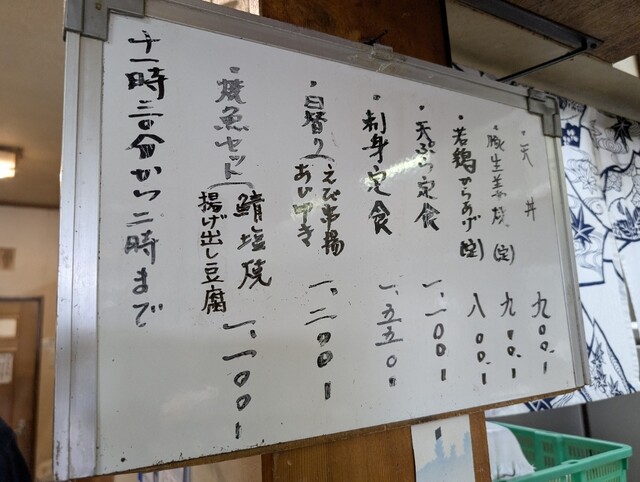 ・天丼 九〇〇、ー
・豚生姜焼(定) 九〇〇、ー
・若鶏からあげ(定) 八〇〇、ー
・天ぷら定食 一、一〇〇ー
・刺身定食 一、五五〇、ー
・日替り(えび串揚 あじ付き 一、二〇〇ー
・焼魚セット(鯖塩焼 揚げ出し豆腐 一、一〇〇ー
十一時三〇分から二時まで